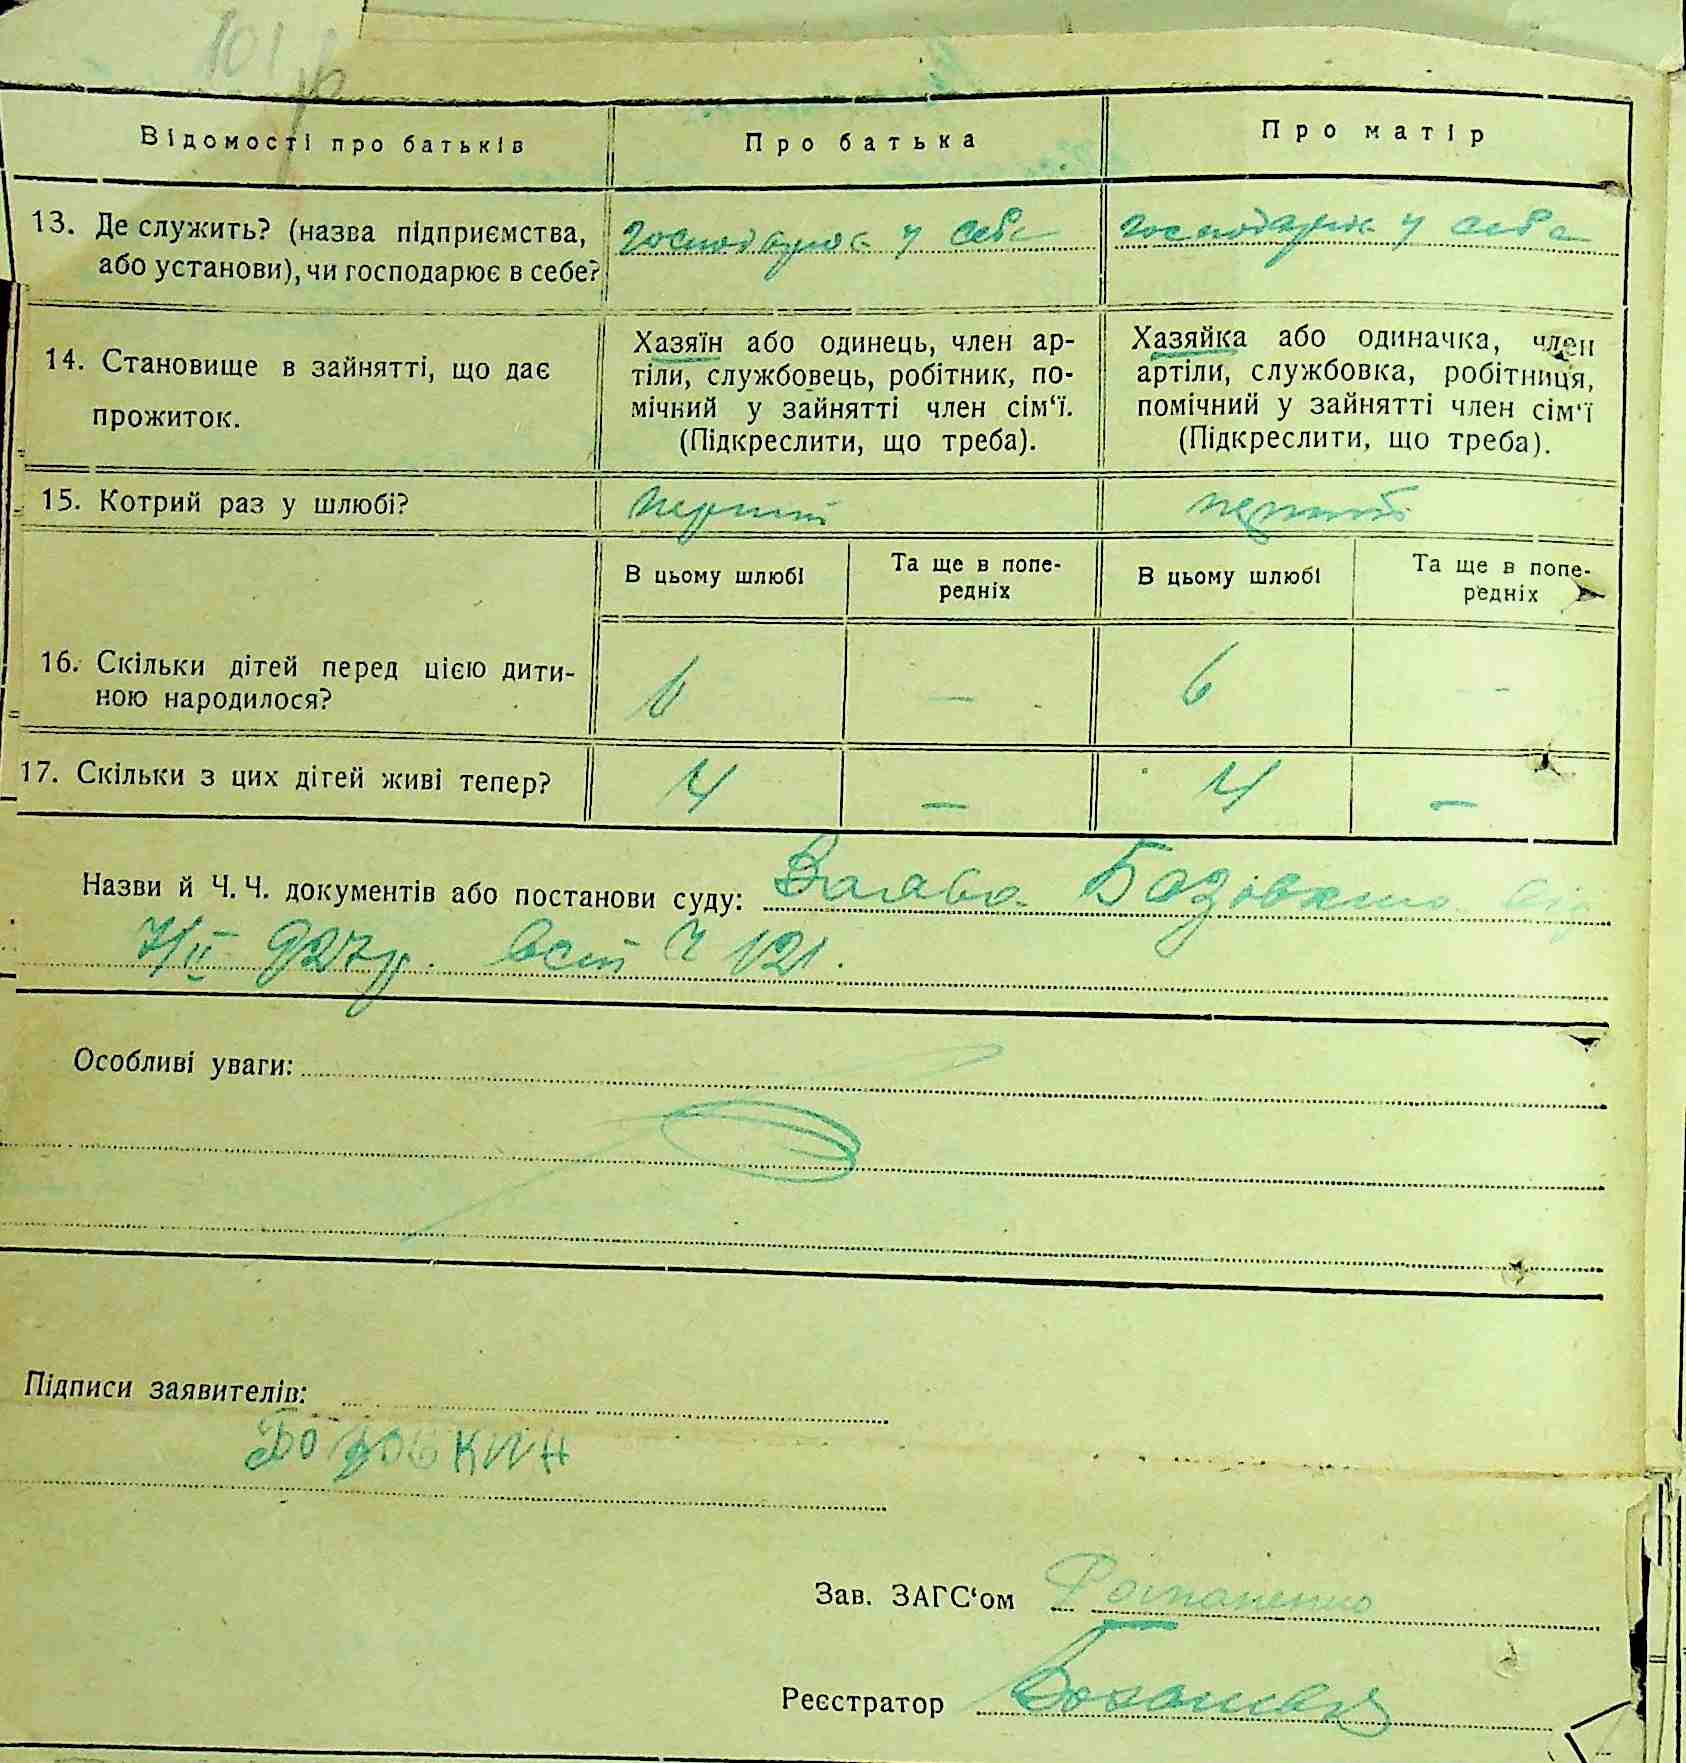 101
Відомості про батьків Про батька Про матір
13. Де служить? (назва підприємства, або установи), чи господарює в себе?
господарює у себе
господарює у себе
14. Становище в зайнятті, що дає прожиток.
Хазяїн або одинець, член ар-
тіли, службовець, робітник, по-
мічний у зайнятті член сім‘ї.
(Підкреслити, що треба).
Хазяйка або одиначка, член
артіли, службовка, робітниця,
помічний у зайнятті член сім‘ї
(Підкреслити, що треба).
15. Котрий раз у шлюбі? перший перший
В цьому шлюбі
Та ще в попе-
редніх
В цьому шлюбі
Та ще в попе-
редніх
16. Скільки дітей перед цією дити-
ною народилося?
6 — 6 -
17. Скільки з цих дітей живі тепер? 4 — 4 —
Назви й Ч. Ч. документів або постанови суду: Заява від
7/II 927р. Ч 121.
Особливі уваги:
Підписи заявителів:
Зав. ЗАГС‘ом
Реєстратор